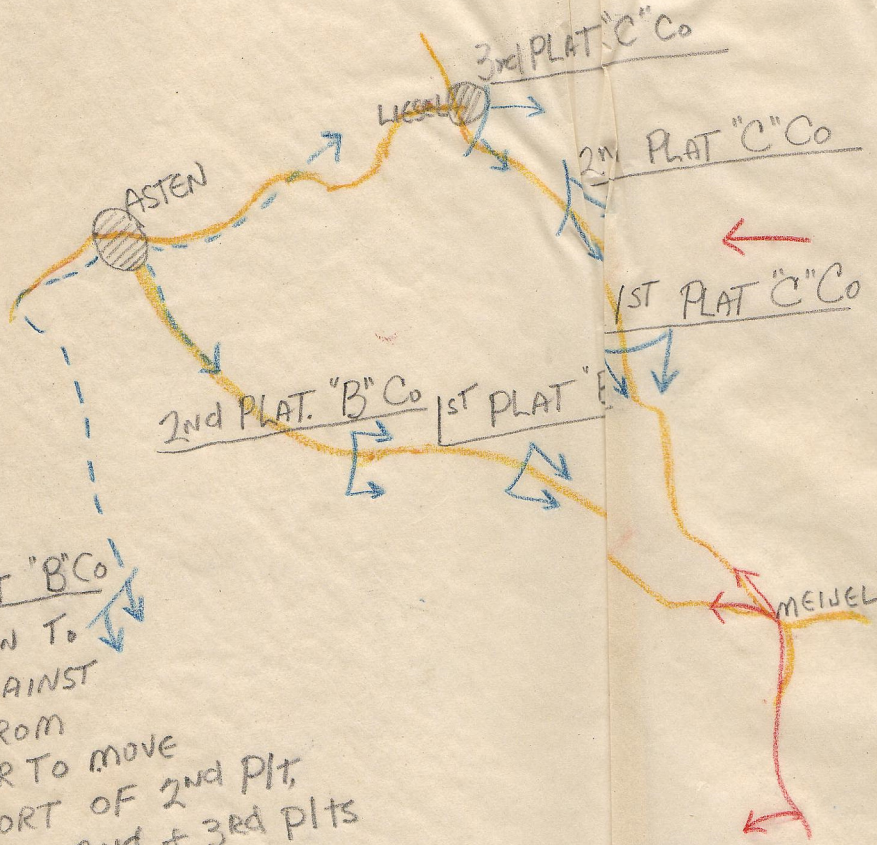 3rd PLAT "C" Co
LIESEL
2nd PLAT "C" Co
ASTEN
1ST PLAT "C" Co
2nd PLAT. "B" Co
1ST PLAT "B
T "B" Co
N To
AINST
ROM
R To MOVE
ORT OF 2nd Plt,
2nd + 3Rd plts
MEIJEL